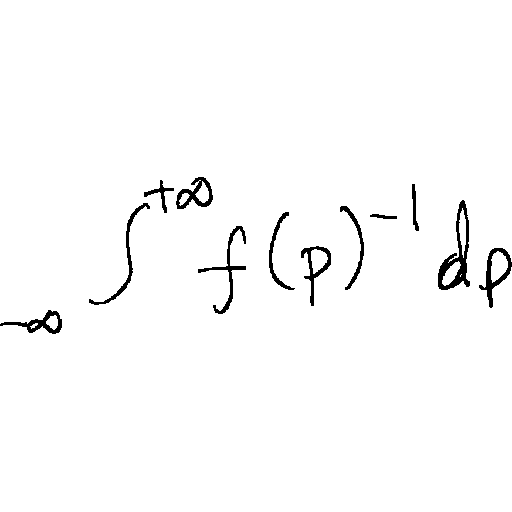 \int_{-\infty}^{+\infty} f(p)^{-1} dp